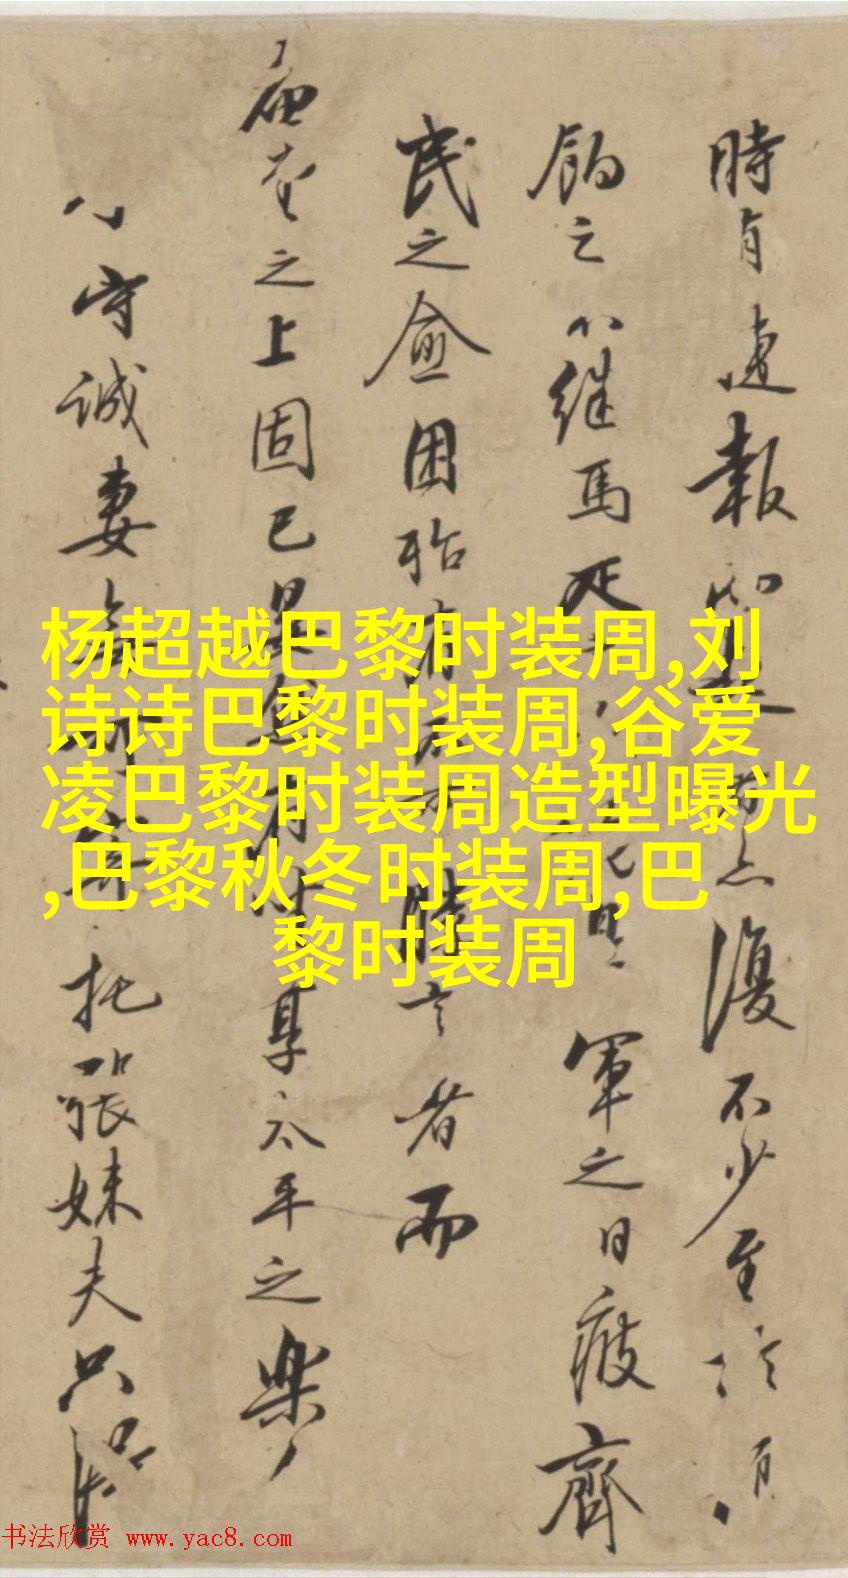 時有報復不少至
餉之继馬軍之日疲
民之愈困殆有言者而
廟堂之上固已享太平之樂
守誠妻托張妹夫只
杨超越巴黎时装周,刘
诗诗巴黎时装周,谷爱
凌巴黎时装周造型曝光
,巴黎秋冬时装周,巴
黎时装周
书法欣赏 www.yac8.com